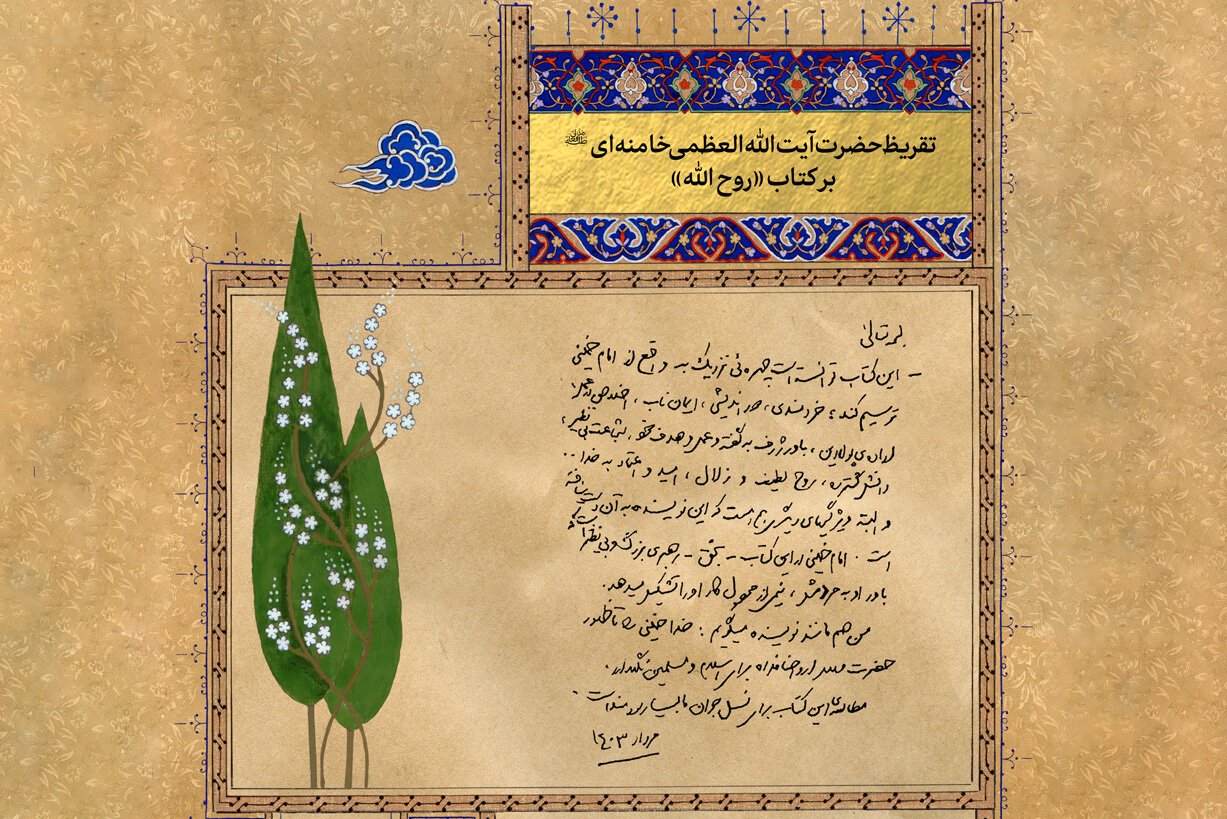 تقریظ حضرت آیت‌الله‌العظمی خامنه‌ای مدظله‌العالی
بر کتاب «روح الله»
بسمه تعالی
- این کتاب توانسته است چهره‌ئی نزدیک به واقع از امام خمینی
ترسیم کند؛ خردمندی، دوراندیشی، ایمان ناب، اخلاص در عمل،
اراده‌ی پولادین، باور ژرف به گفته و عمل و هدف خود، شجاعت بی‌نظیر،
دانش گسترده، روح لطیف و زلال، امید و اعتماد به خدا ..
و البته ویژگیهای دیگری هم هست که این نویسنده به آن دست نیافته
است . امام خمینی در این کتاب - بحق - رهبری بزرگ و بی‌نظیر است
باور او به مردمش ، نیمی از محصول کار او را تشکیل میدهد.
من هم مانند نویسنده میگویم : خدا خمینی را تا ظهور
حضرت مهدی ارواحنا فداه برای اسلام و مسلمین نگهدارد.
مطالعه‌ی این کتاب برای نسل جوان ما بسیار سودمند است.
مرداد ۱۴۰۳